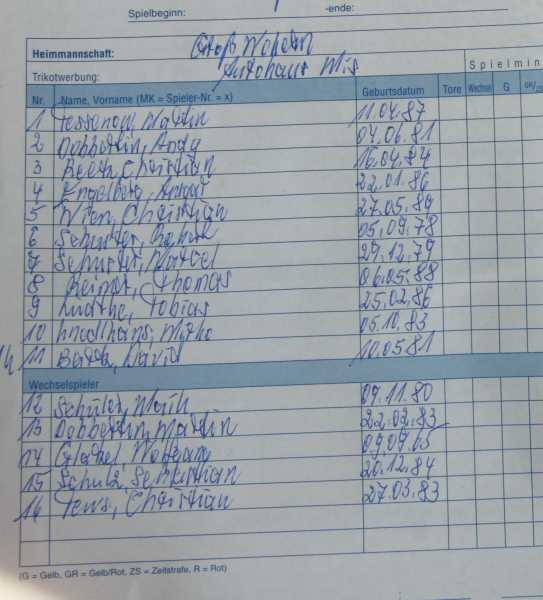 Spielbeginn: -ende:
Spielmin
Heimmannschaft: Groß Wokern
Trikotwerbung: Autohaus
Nr. Name, Vorname (MK = Spieler-Nr. = x) Geburtsdatum Tore Wechsel G
1 Tessenow, Martin 11.04.87
2 Dobbertin, Andy 04.06.81
3 Christian 16.04.84
4 Engelberg, 22.01.86
5 Wien, Christian 27.05.89
6 Schuster, 05.09.78
7 Schuster, Marcel 29.12.79
8 Reimer, Thomas 06.05.88
9 Tobias 25.02.86
10 05.10.83
11 David 10.05.81
Wechselspieler
12 Schüler, Maik 09.11.80
13 Dobbertin, Martin 22.02.83
14 Wolfram 09.09.65
15 Schulz, Sebastian 20.12.84
16 Tews, Christian 27.03.83
(G = Gelb, GR = Gelb/Rot, ZS = Zeitstrafe, R = Rot)